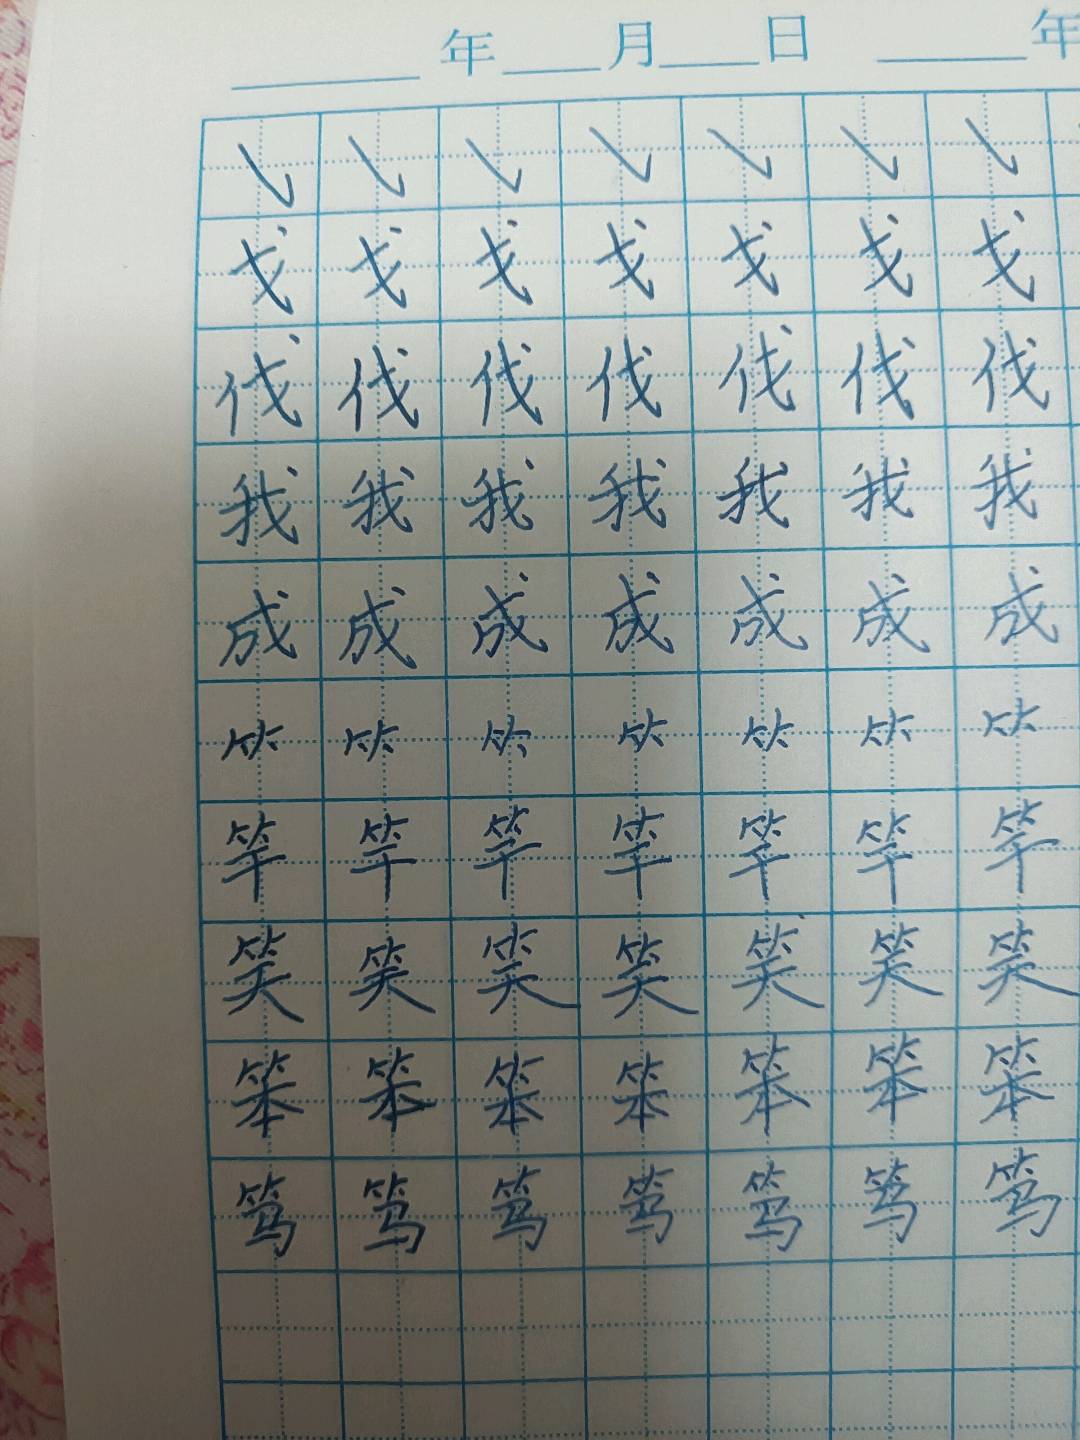 年 月 日 年
㇂ ㇂ ㇂ ㇂ ㇂ ㇂ ㇂
戈 戈 戈 戈 戈 戈 戈
伐 伐 伐 伐 伐 伐 伐
我 我 我 我 我 我 我
成 成 成 成 成 成 成
⺮ ⺮ ⺮ ⺮ ⺮ ⺮ ⺮
竿 竿 竿 竿 竿 竿 竿
笑 笑 笑 笑 笑 笑 笑
笨 笨 笨 笨 笨 笨 笨
笃 笃 笃 笃 笃 笃 笃